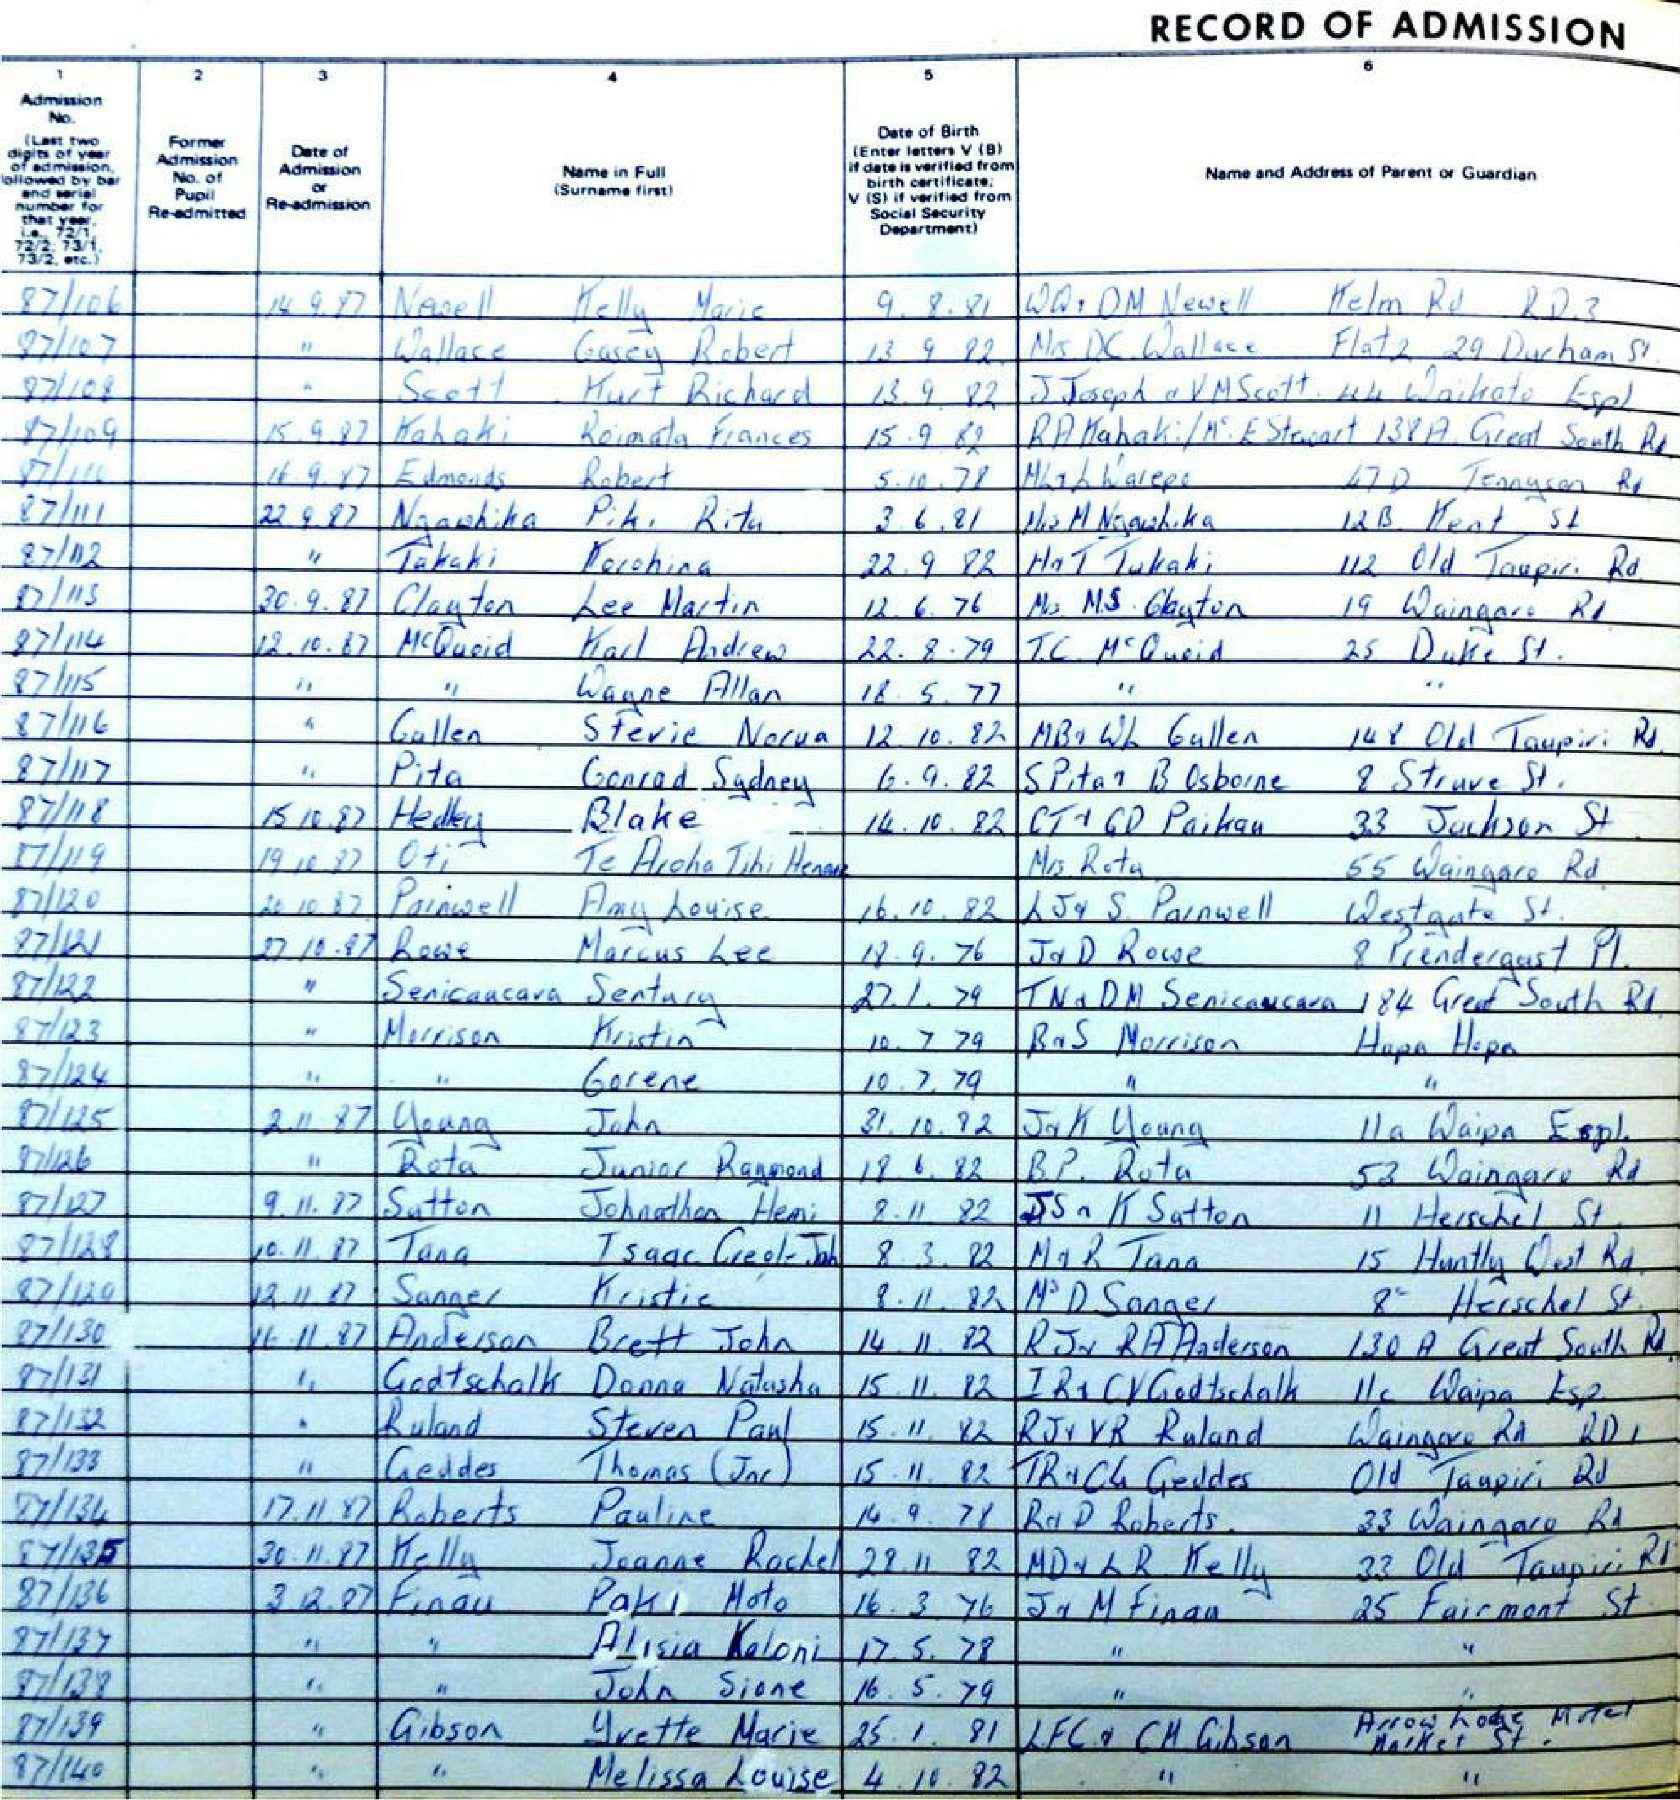 RECORD OF ADMISSION
1 2 3 4 5 6
Admission No. (Last two digits of year of admission, followed by bar and serial number for that year, i.e., 72/1, 72/2, 73/1, 73/2, etc.)
Former Admission No. of Pupil Re-admitted
Date of Admission or Re-admission
Name in Full (Surname first)
Date of Birth (Enter letters V (B) if date is verified from birth certificate; V (S) if verified from Social Security Department)
Name and Address of Parent or Guardian
87/106 14.9.87 Newell Kelly Marie 9.8.81 DM Newell Kelm Rd R.D.3
87/107 " Wallace Casey Robert 13 9 82 Mrs DC Wallace Flat 2 29 Durham St.
87/108 " Scott Kurt Richard 13.9.82 J Joseph & VM Scott. 44 Waikato Espl
87/109 15.9.87 Kahaki Roimata Frances 15.9 82 RA Kahaki/ E Stewart 138A Great South Rd
87/110 16 9.87 Edmonds Robert 5.10.78 47D Tennyson Rd
87/111 22 9.87 Ngawhika Piki Rita 3.6.81 Mrs M Ngawhika 12B Kent St
87/112 " Takaki Korohina 22.9 82 H&T Tukaki 112 Old Taupiri Rd
87/113 30.9.87 Clayton Lee Martin 12.6.76 M.S. Clayton 19 Waingaro Rd
87/114 12.10.87 McQuoid Karl Andrew 22.8.79 T.C. McQuoid 25 Duke St.
87/115 " " Wayne Allan 18.5.77 " "
87/116 " Cullen Stevie Norua 12.10.82 MB& WL Cullen 148 Old Taupiri Rd.
87/117 " Pita Conrad Sydney 6.9.82 S Pita & B Osborne 8 Struve St.
87/118 15 10.87 Hedley Blake 14.10.82 CT& CD Paikau 33 Jackson St
87/119 19 10.87 Oti Te Aroha Tihi Henare Mrs Rota 55 Waingaro Rd
87/120 20 10.87 Painwell Amy Louise 16.10.82 LJ& S. Painwell Westgate St.
87/121 27.10.87 Rowe Marcus Lee 18.9.76 J&D Rowe 8 Prendergast Pl.
87/122 " Senicaucava Sentury 27.1.79 TN&DM Senicaucava 184 Great South Rd.
87/123 " Morrison Kristin 10.7 79 B&S Morrison Hopa Hopa
87/124 " " Corene 10.7.79 " "
87/125 2.11.87 Young John 31.10.82 J&K Young 11a Waipa Espl.
87/126 " Rota Junior Raymond 18.6.82 B.P. Rota 53 Waingaro Rd
87/127 9.11.87 Sutton Johnathan Hemi 8.11 82 JS & K Sutton 11 Herschel St.
87/128 10.11.87 Tana Isaac Creol-Joh 8.3.82 M&R Tana 15 Huntly West Rd.
87/129 12.11.87 Sanger Kristie 8.11.82 Ms D Sanger 8c Herschel St.
87/130 16.11.87 Anderson Brett John 14.11.82 RJ& RA Anderson 130 A Great South Rd.
87/131 " Godtschalk Donna Natasha 15.11.82 IR& CV Godtschalk 11c Waipa Esp.
87/132 " Ruland Steven Paul 15.11.82 RJ& VR Ruland Waingaro Rd RD1
87/133 " Geddes Thomas (Jnr) 15.11.82 TR& CG Geddes Old Taupiri Rd
87/134 17.11.87 Roberts Pauline 14.9.78 R&D Roberts. 33 Waingaro Rd
87/135 30.11.87 Kelly Joanne Rachel 28.11 82 MD& LR Kelly 33 Old Taupiri Rd
87/136 3.12.87 Finau Paki Moto 16.3.76 J& M Finau 25 Fairmont St
87/137 " " Alisia Kaloni 17.5.78 " "
87/138 " " John Sione 16.5.79 " "
87/139 " Gibson Yvette Marie 25.1.81 LFC & CH Gibson Arrow Lodge Motel Market St.
87/140 " " Melissa Louise 4.10.82 " "